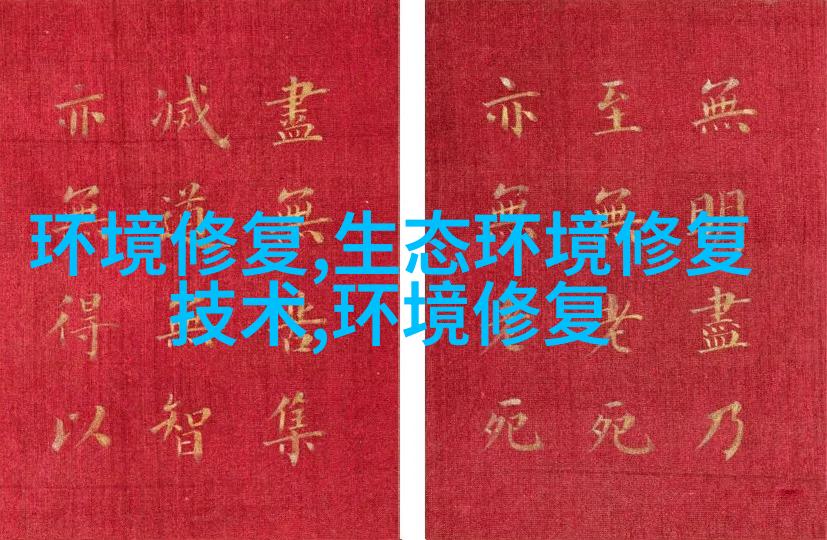 环境修复,生态环境修复
技术,环境修复
無明盡乃
至無老死
亦無老死
盡無苦集
滅道無智
亦無得以